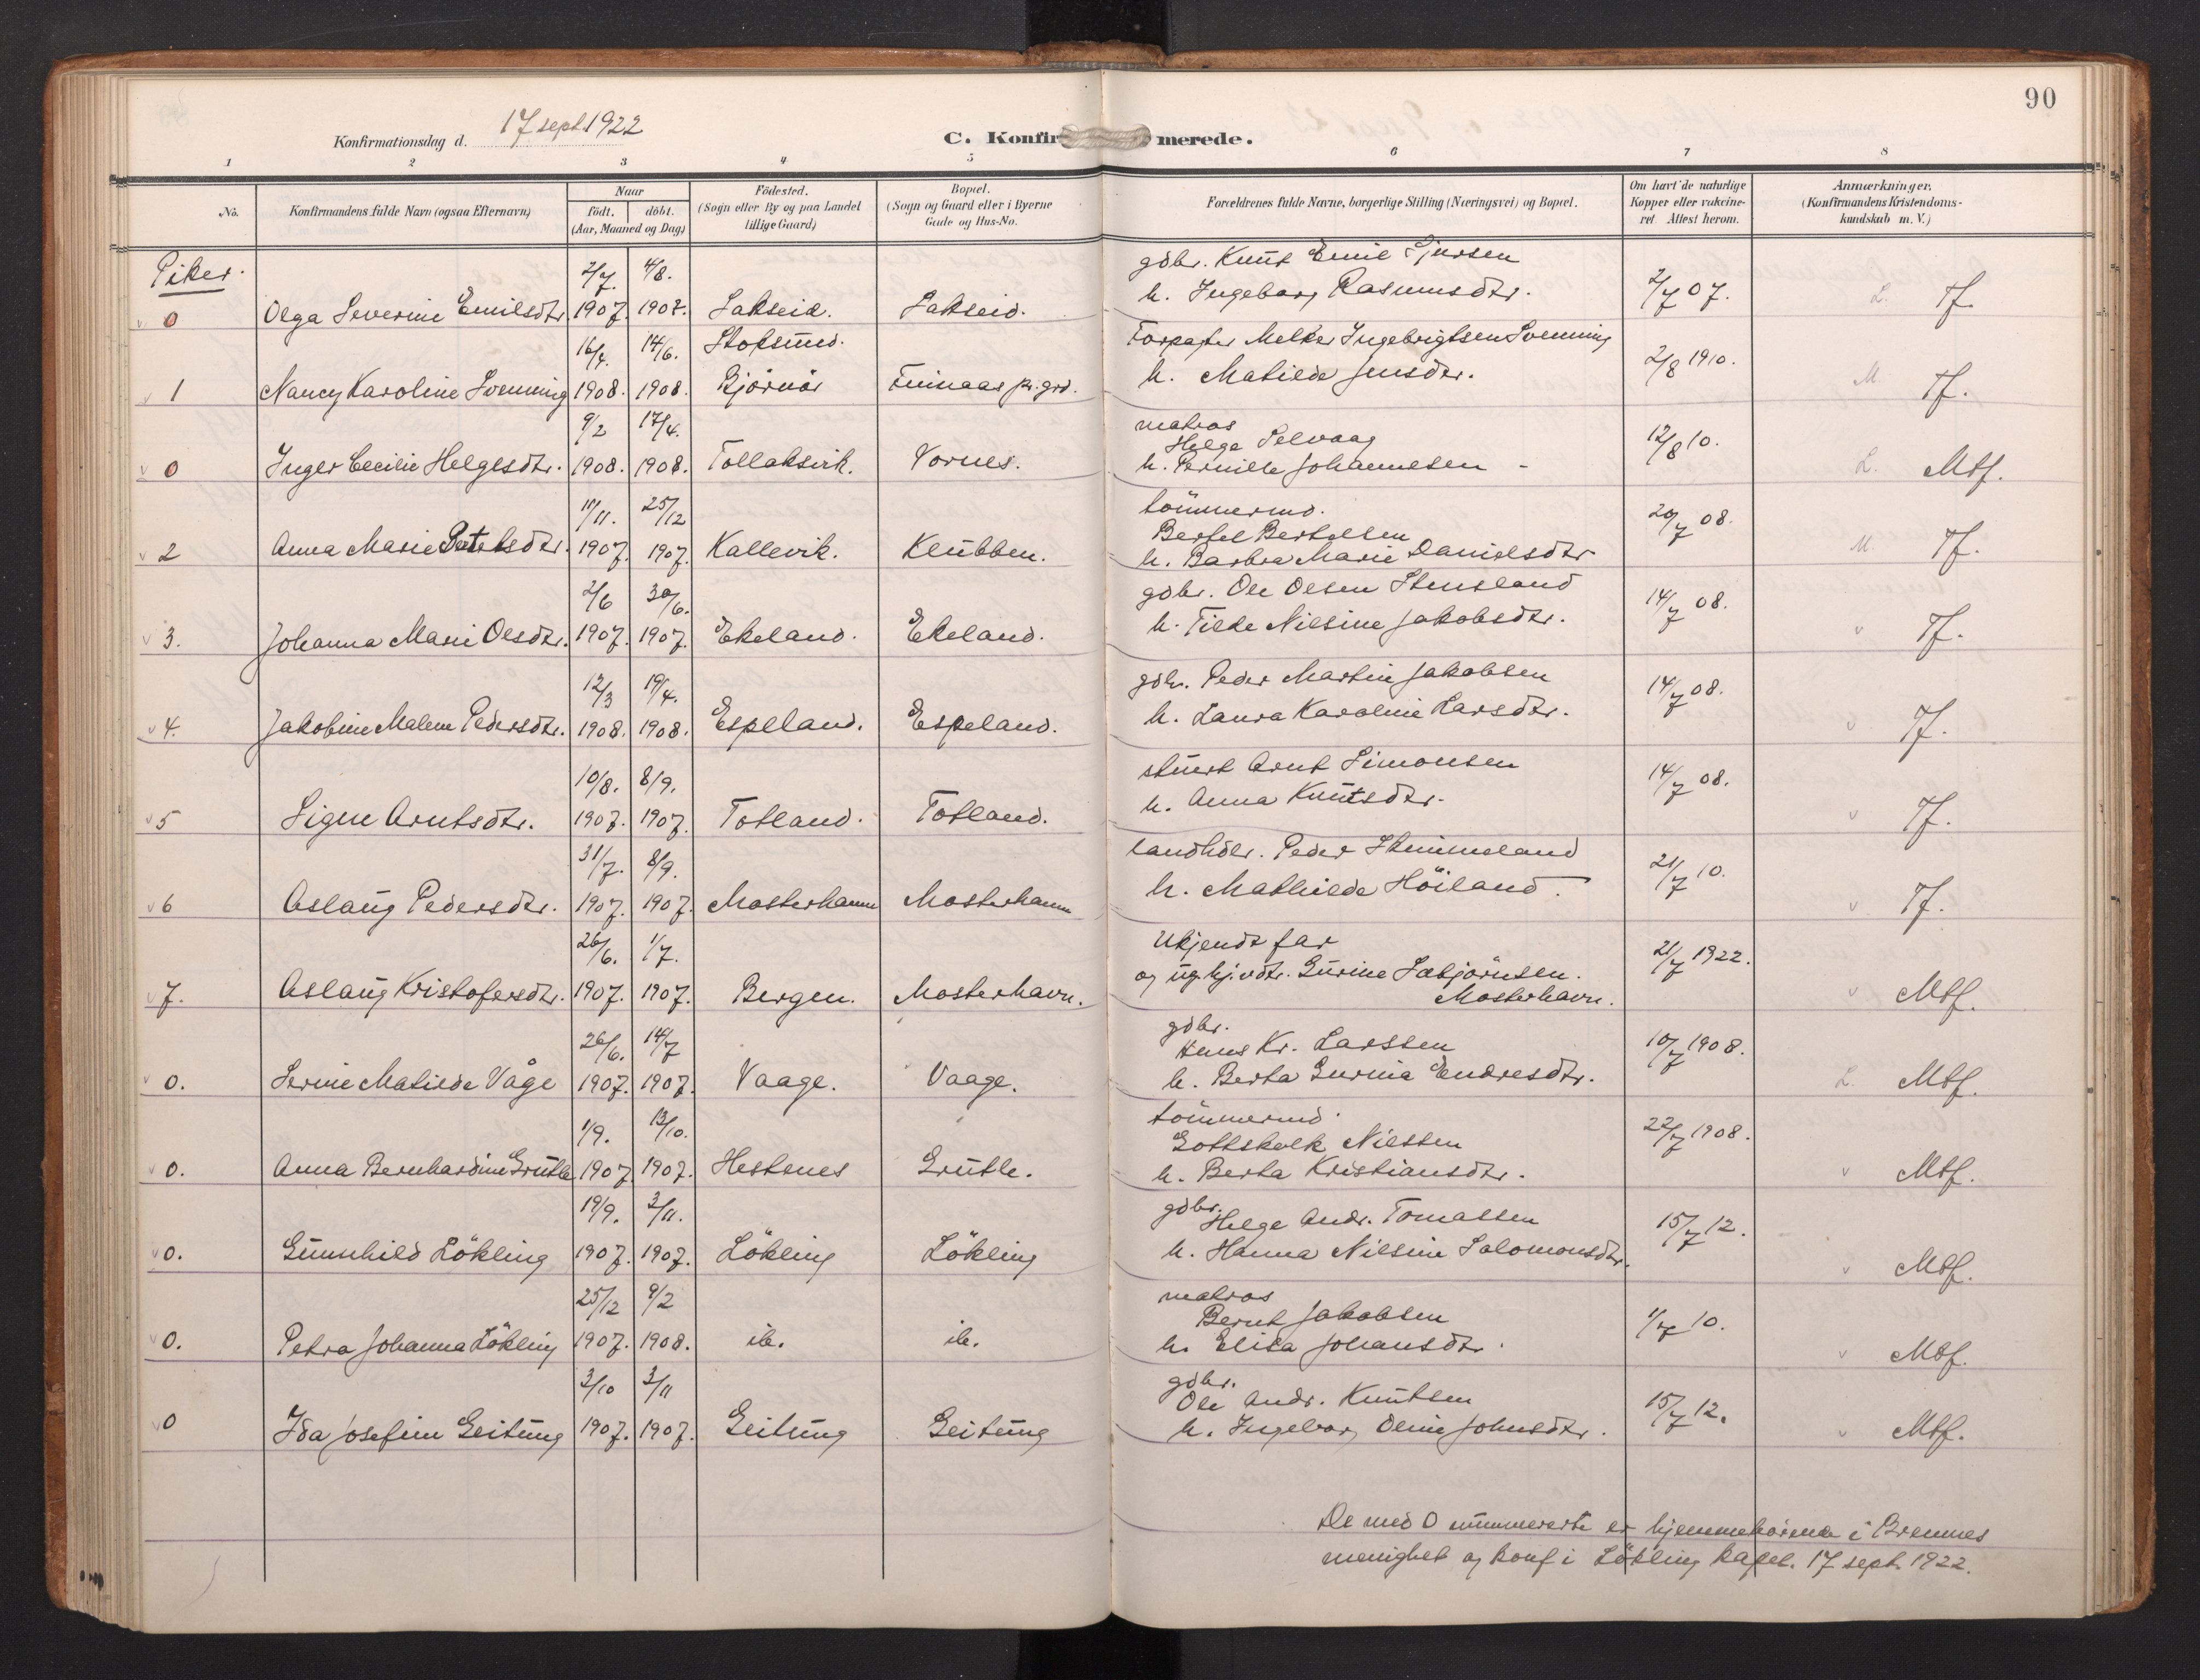 90
Konfirmationsdag d. 17 sept. 1922
C. Konfir merede.
1 2 3 4 5 6 7 8
No.
Konfirmandens fulde Navn (ogsaa Efternavn)
Naar
födt. döbt.
(Aar, Maaned og Dag)
Födested.
(Sogn eller By og paa Landet
tillige Gaard)
Bopæl.
(Sogn og Gaard eller i Byerne
Gade og Hus-No.
Forældrenes fulde Navne, borgerlige Stilling (Næringsvei) og Bopæl.
Om havt de naturlige
Kopper eller vakcine-
ret Attest herom.
Anmærkninger.
(Konfirmandens Kristendoms-
kundskab m. V.)
Piker.
2/7. 4/8. gdbr. Knut Emil Sjursen
0 Olga Severine Emilsdtr. 1907. 1907. Sakseid. Sakseid. h. Ingeborg Rasmusdtr. 2/7 07. L. Tf.
16/4. 14/6. Stoksund. Forpagter Melker Ingebrigtsen Svenning
1 Nancy Karoline Svenning 1908. 1908. Björnör Finnaas pr.grd. h. Matilde Jensdtr. 2/8 1910. M. Tf.
9/2 17/4. matros
Helge Selvaag
0 Inger Cecilie Helgesdtr. 1908. 1908. Tollaksvik. Vornes. h. Pernille Johannesen - 12/8 10. L. Mtf.
11/11. 25/12 tömmermd.
Bertel Bertelsen
2 Anna Marie 1907. 1907. Kallevik. Klubben. h. Barbra Marie Danielsdtr 20/7 08. M. Tf.
2/6 30/6. gdbr. Ole Olsen Stensland
3. Johanna Marie Olsdtr. 1907. 1907. Ekeland. Ekeland. h. Tilde Nilsine Jakobsdtr. 14/7 08. " Tf.
12/3 19/4. gdbr. Peder Martin Jakobsen
4. Jakobine Malene Pedersdtr. 1908. 1908. Espeland. Espeland. h. Laura Karoline Larsdtr. 14/7 08. " Tf.
10/8. 8/9. stuert Arnt Simonsen
5 Signe Arntsdtr. 1907. 1907. Totland. Totland. h. Anna Knutsdtr. 14/7 08. " Tf.
31/7. 8/9. landhdlr. Peder Hemmeland
6 Aslaug Pedersdtr. 1907. 1907. Mosterhamn Mosterhamn h. Mathilde Höiland. 21/7 10. " Tf.
26/6. 1/7. Ukjendt far
7. Aslaug Kristofersdtr. 1907. 1907. Bergen. Mosterhavn. og ug. Gurine Sæbjörnsen. 21/7 1922. " Mtf.
Mosterhavn.
26/6. 14/7 gdbr.
Hans Kr. Larssen
0. Serine Matilde Våge 1907. 1907. Vaage. Vaage. h. Berta Gurina Endresdtr. 10/7 1908. L. Mtf.
1/9. 13/10. tömmermd.
Gottskalk Nilssen
0. Anna Bernhardine Grutle 1907. 1907. Hestenes Grutle. h. Berta Kristiansdtr. 22/7 1908. " Mtf.
19/9. 3/11. gdbr.
Helge Andr. Tomassen
0. Gunnhild Lökling 1907. 1907. Lökling Lökling h. Hanna Nilsine Salomonsdtr. 15/7 12. " Mtf.
25/12 9/2 matros
Bernt Jakobsen
0. Petra Johanna Lökling 1907. 1908. ib. ib. h. Elisa Johansdtr. 1/7 10. " Mtf.
3/10 3/11 gdbr.
Ole Andr. Knutsen
0 Ida Josefine Geitung 1907. 1907. Geitung Geitung h. Ingeborg Oline Johnsdtr. 15/7 12. " Mtf.
De med 0 nummererte er hjemmehörende i Bremnes
menighet og konf i Lökling kapel. 17 sept. 1922.